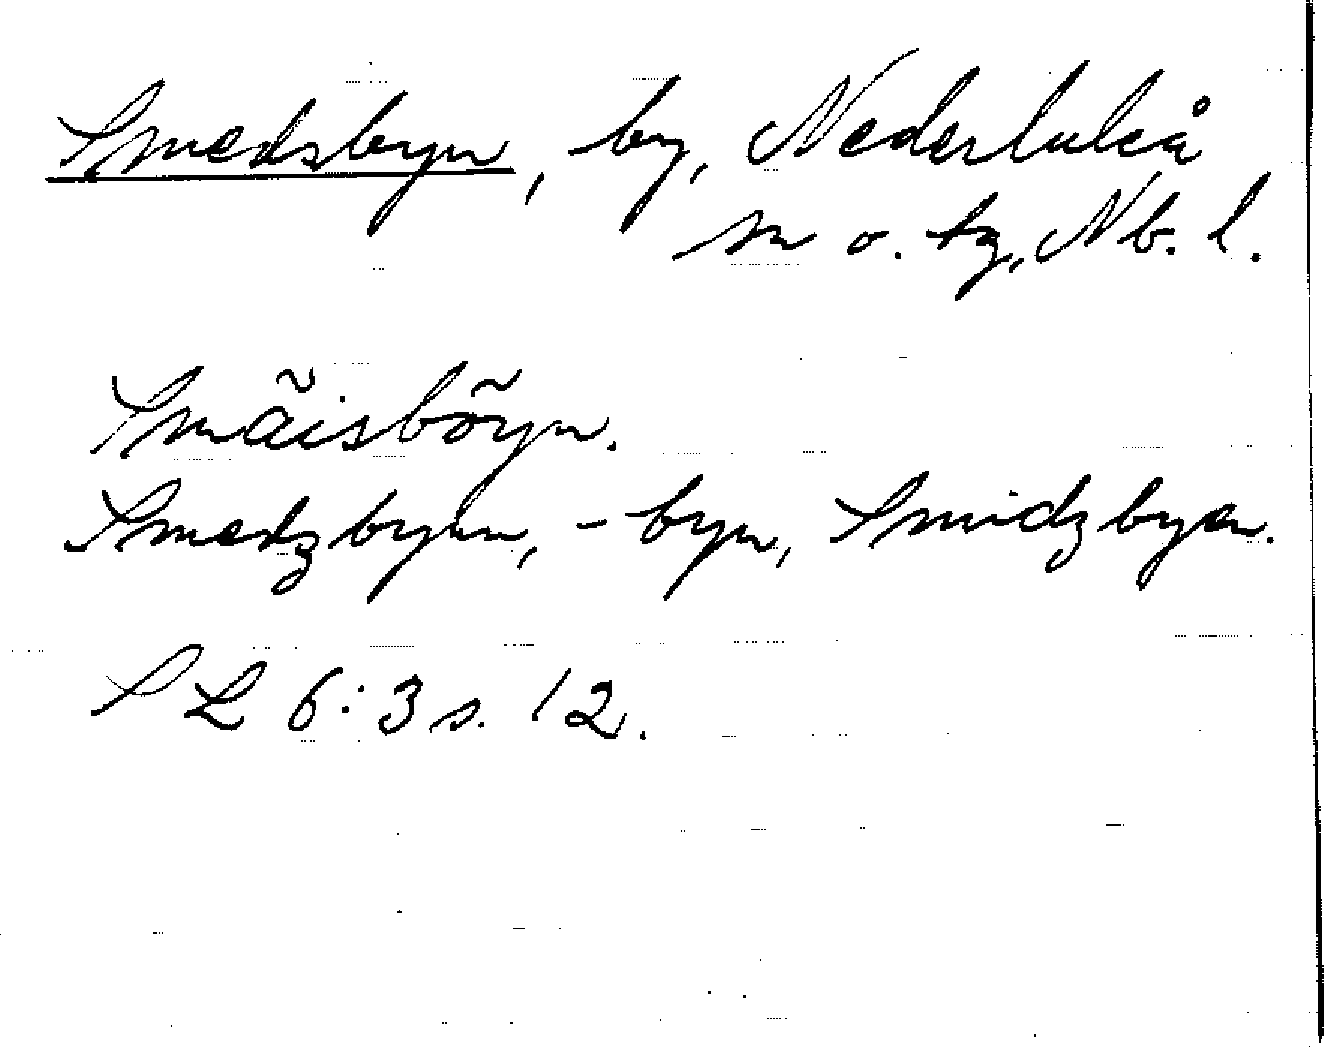 Smedsbyn, by, Nederluleå
sn o. tg, Nb. l.
Smãisbõyn.
Smedzbynn, - byn, Smidzbyen.
SL 6:3 s. 12.